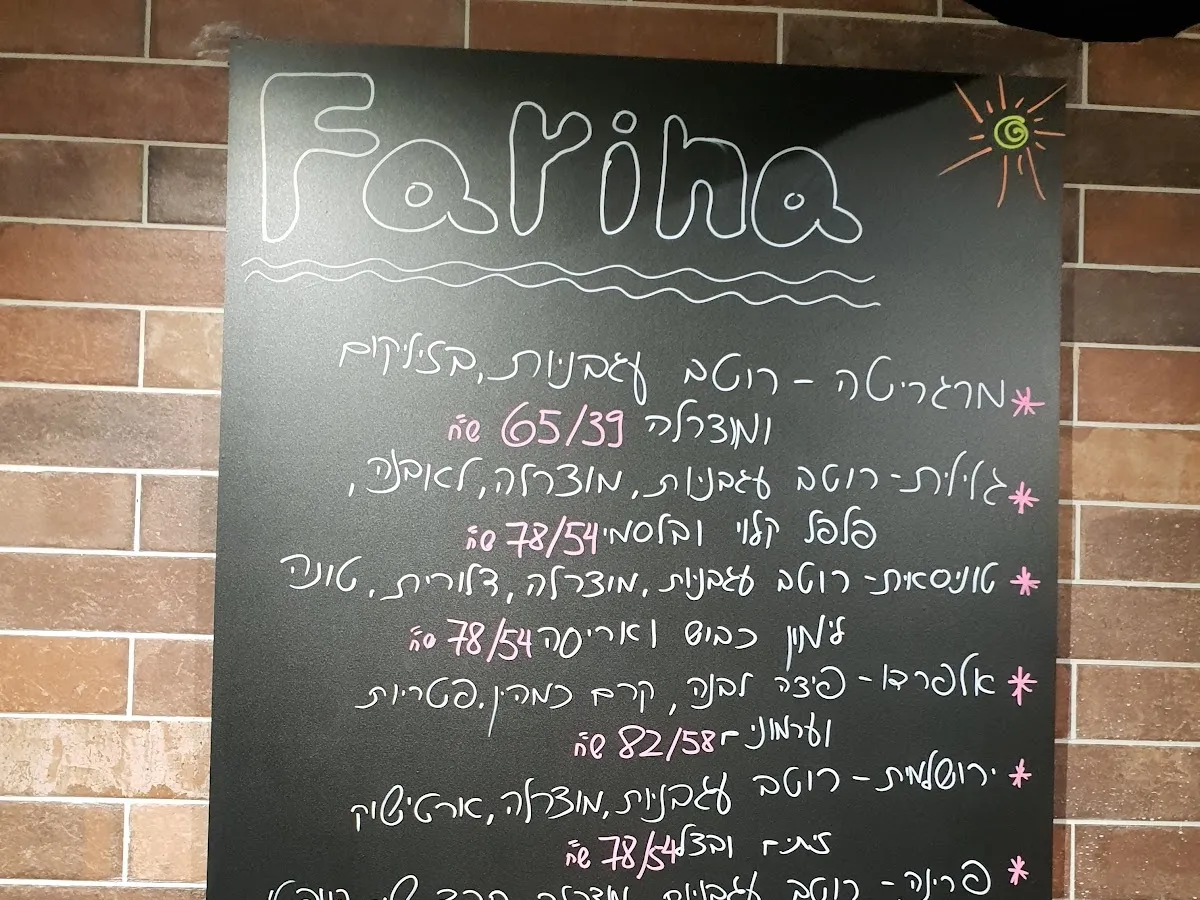 Farina
* מרגריטה - רוטב עגבניות, בזיליקום
ומוצרלה 65/39 ש"ח
* גלילית - רוטב עגבניות, מוצרלה, לאבנה,
פלפל קלוי ובלסמי 78/54 ש"ח
* טוניסאית - רוטב עגבניות, מוצרלה, דלורית, טונה
לימון כבוש ואריסה 78/54 ש"ח
* אלפרדו - פיצה לבנה, קרם כמהין, פטריות
וערמונים 82/58 ש"ח
* ירושלמית - רוטב עגבניות, מוצרלה, ארטישוק
זיתים ובצל 78/54 ש"ח
* פרינה - רוטב עגבניות, מוצרלה